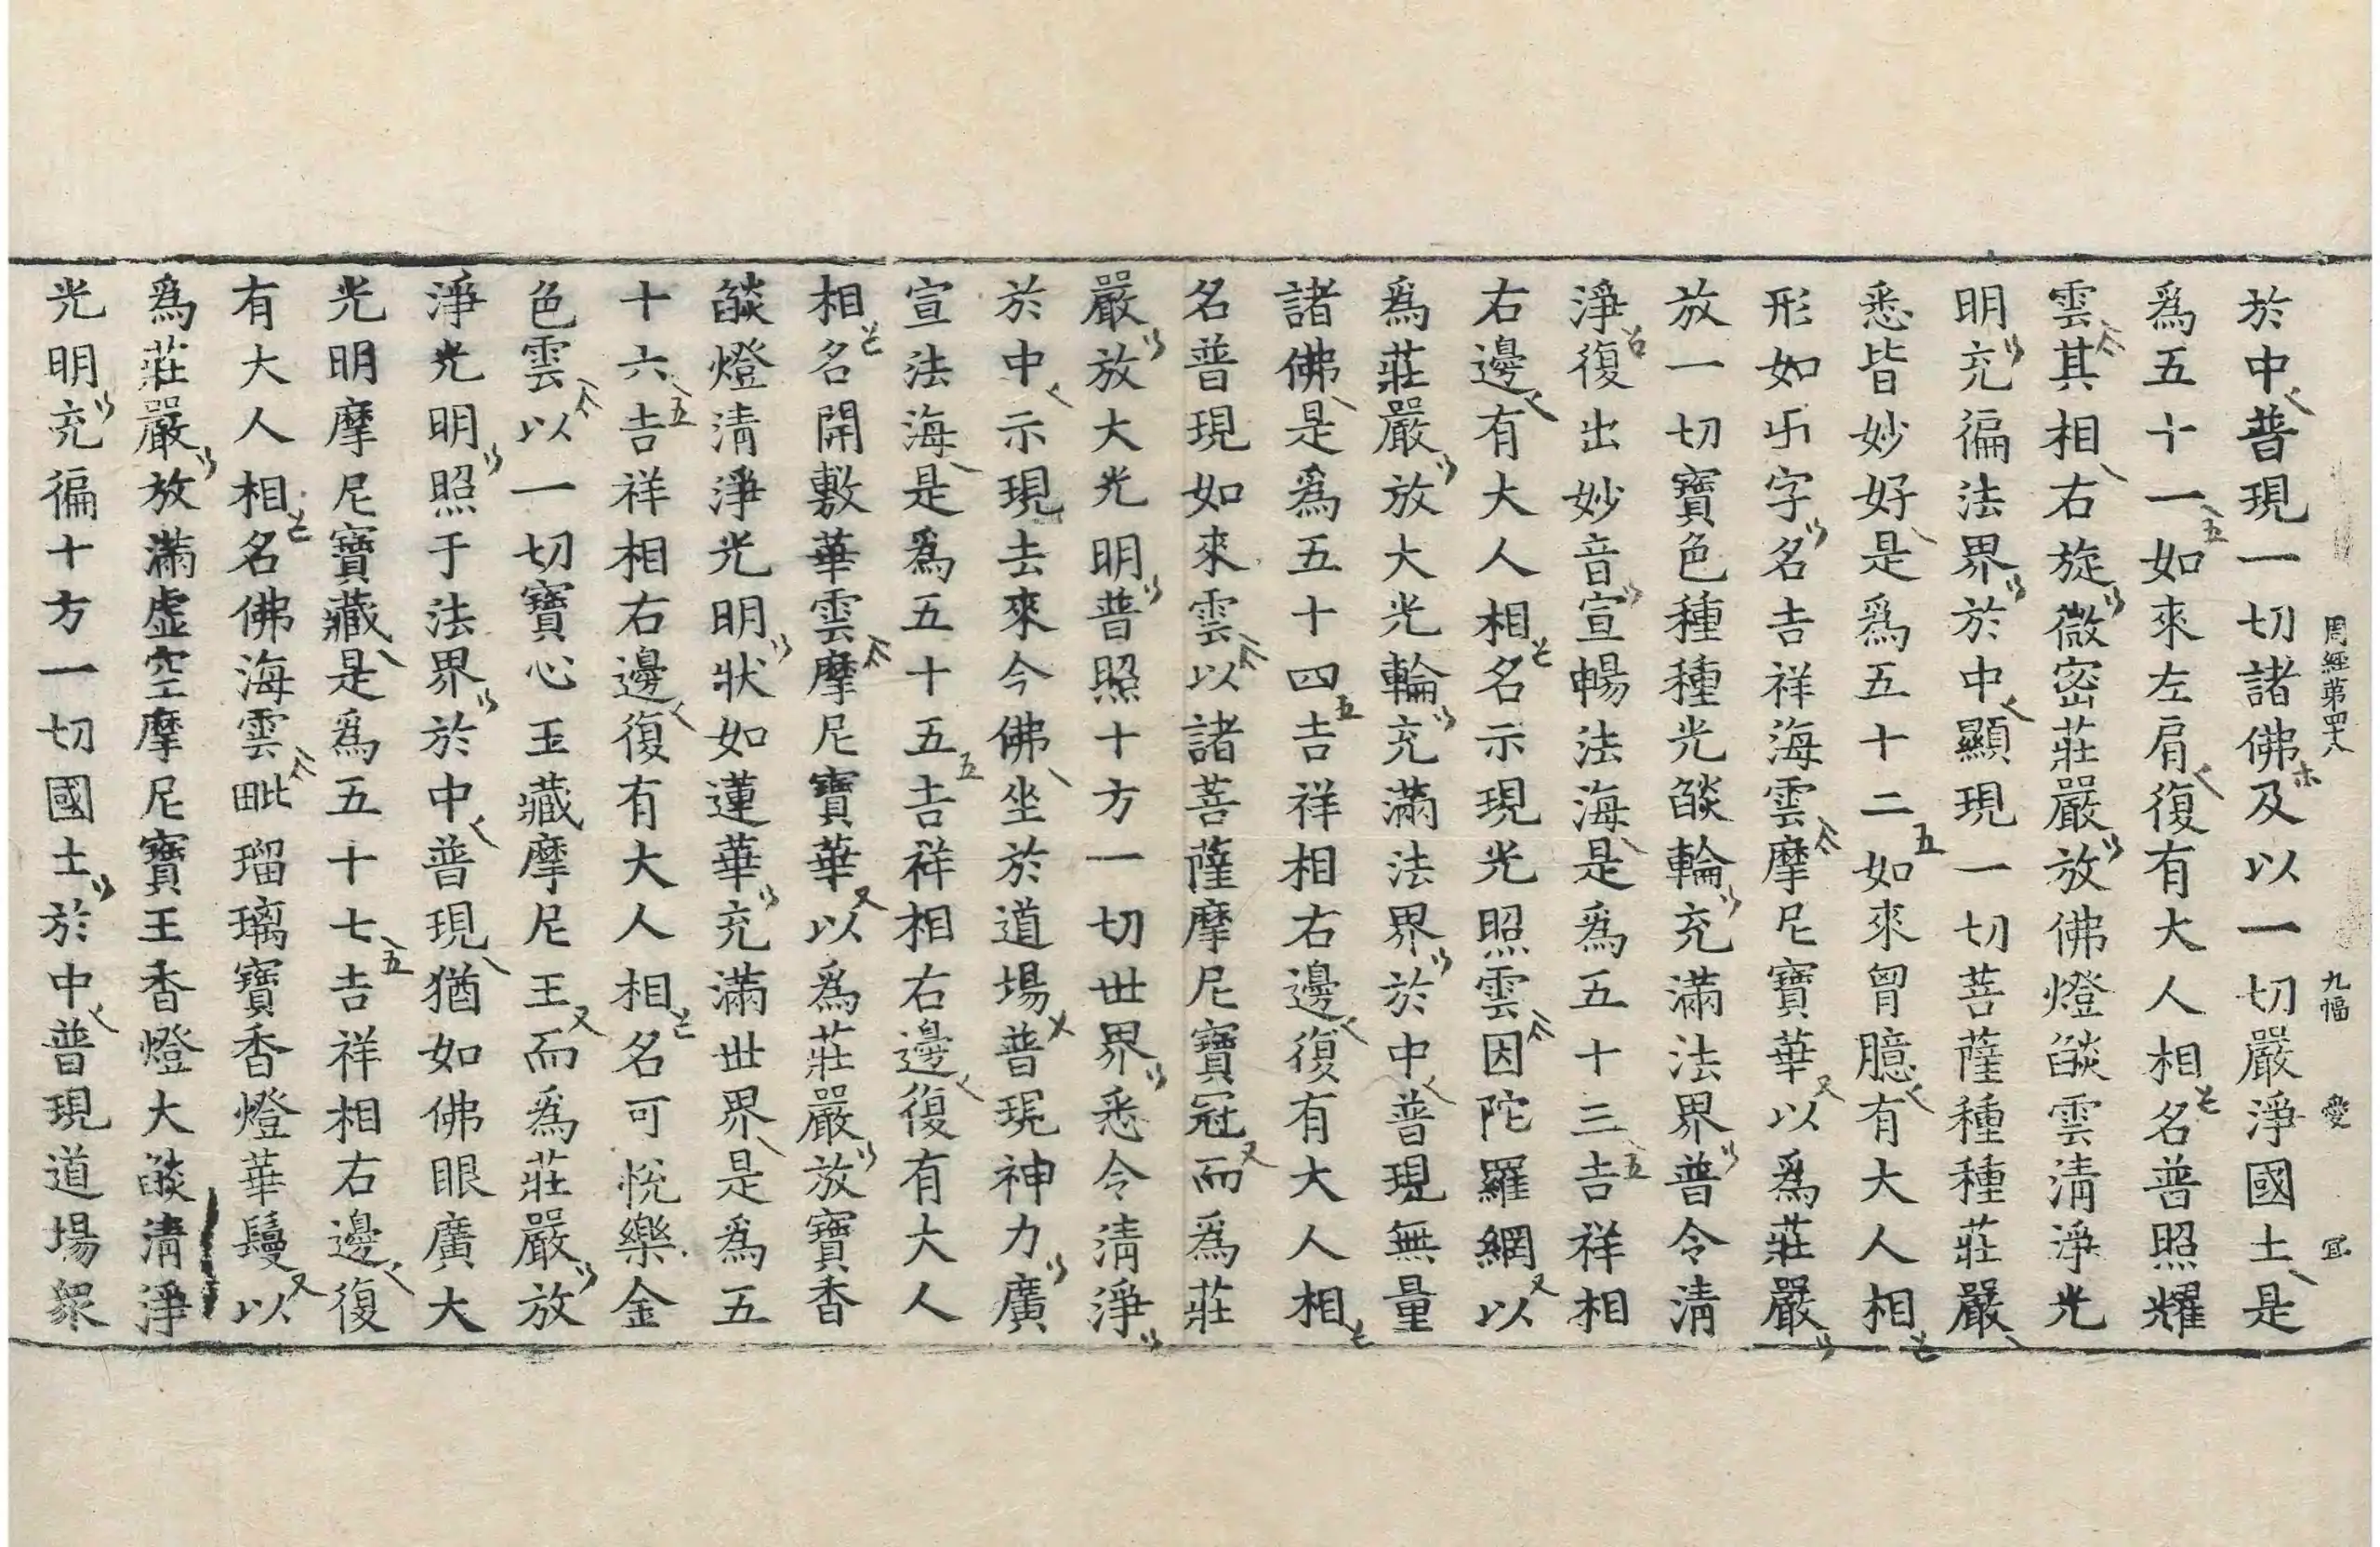 周經第四十八 九幅 愛 冝
於中普現一切諸佛及以一切嚴淨國土是
爲五十一如來左肩復有大人相名普照耀
雲其相右旋微密莊嚴放佛燈燄雲清淨光
明充徧法界於中顯現一切菩薩種種莊嚴
悉皆妙好是爲五十二如來胷臆有大人相
形如卐字名吉祥海雲摩尼寶華以爲莊嚴
放一切寶色種種光燄輪充滿法界普令清
淨復出妙音宣暢法海是爲五十三吉祥相
右邊有大人相名示現光照雲因陀羅網以
爲莊嚴放大光輪充滿法界於中普現無量
諸佛是爲五十四吉祥相右邊復有大人相
名普現如來雲以諸菩薩摩尼寶冠而爲莊
嚴放大光明普照十方一切世界悉令清淨
於中示現去來今佛坐於道場普現神力廣
宣法海是爲五十五吉祥相右邊復有大人
相名開敷華雲摩尼寶華以爲莊嚴放寶香
燄燈清淨光明狀如蓮華充滿世界是爲五
十六吉祥相右邊復有大人相名可悅樂金
色雲以一切寶心王藏摩尼王而爲莊嚴放
淨光明照于法界於中普現猶如佛眼廣大
光明摩尼寶藏是爲五十七吉祥相右邊復
有大人相名佛海雲毗瑠璃寶香燈華鬘以
爲莊嚴放滿虛空摩尼寶王香燈大燄清淨
光明充徧十方一切國土於中普現道場衆